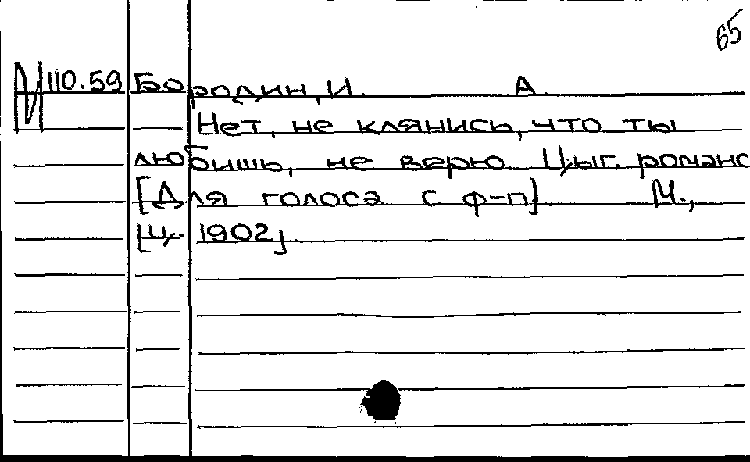 65
М 110.59 Бородин, И. А.
Нет, не клянись, что ты
любишь, не верю. Цыг. романс
[Для голоса с ф-п] М.,
[ц. 1902]